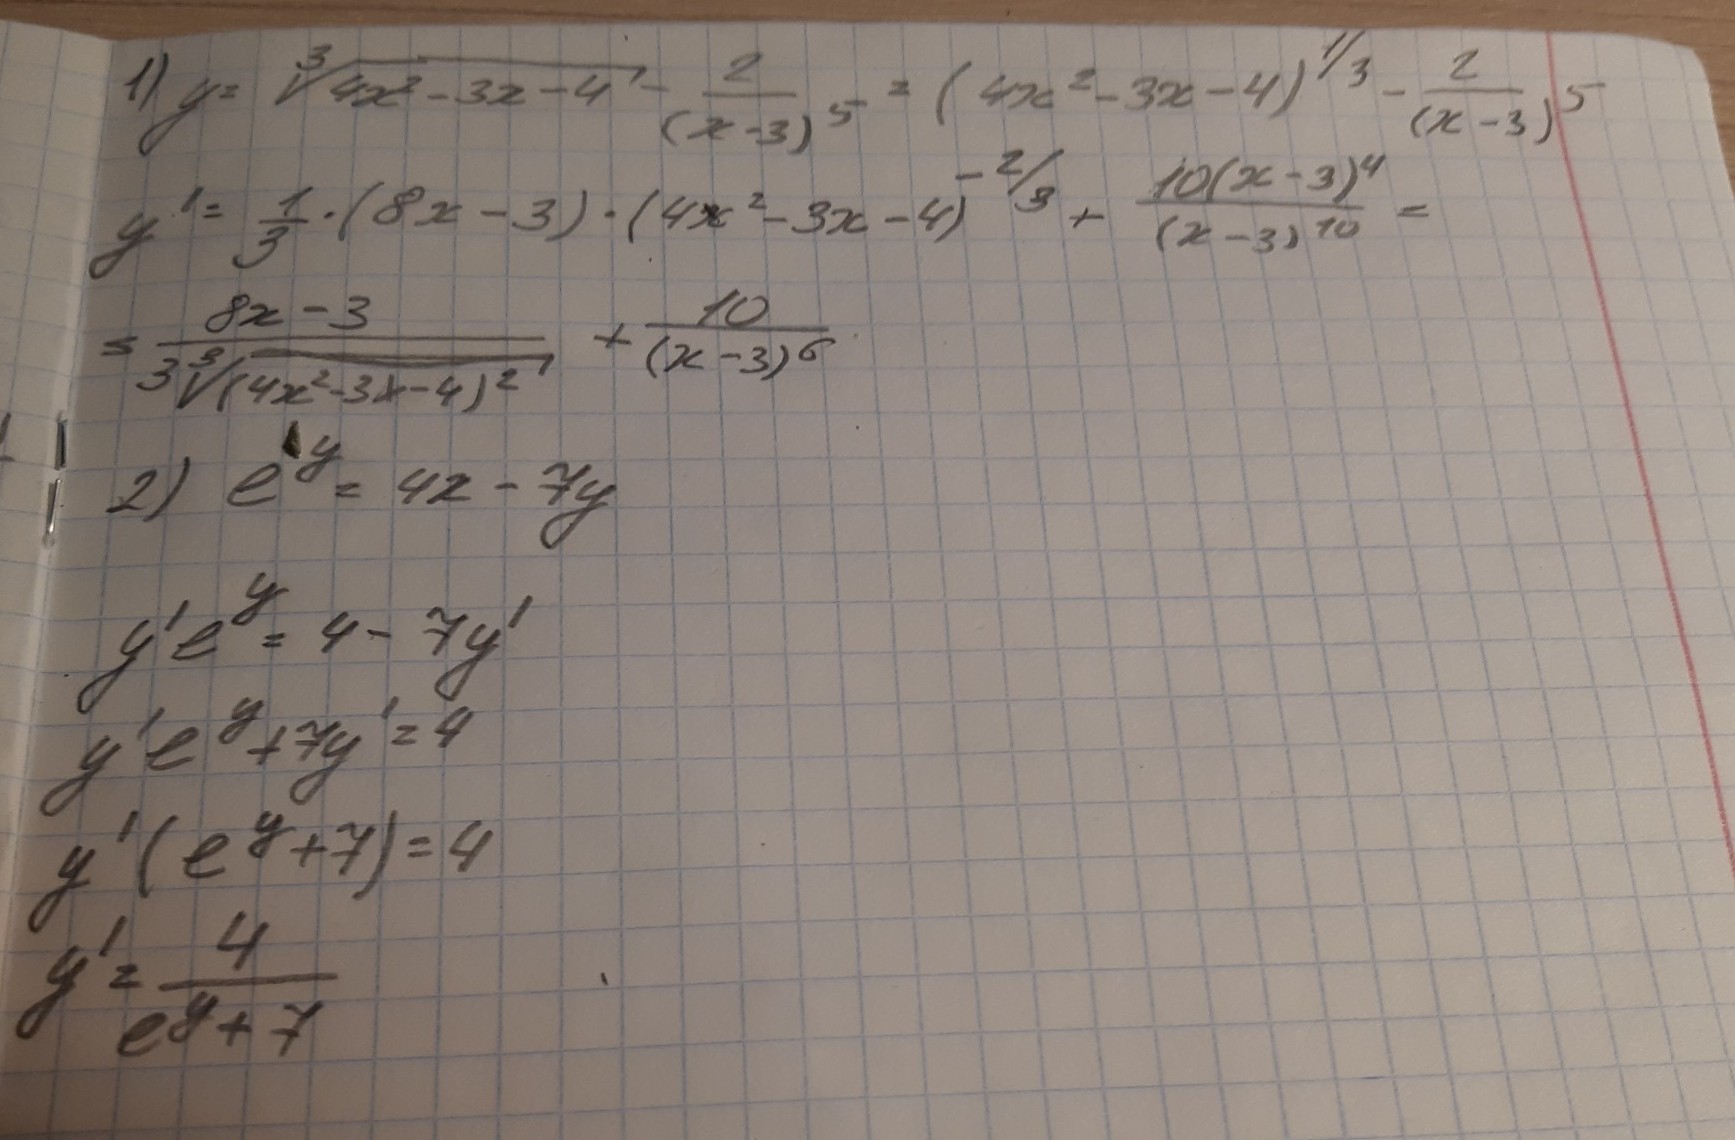 1) y = ∛(4x² - 3x - 4) - 2/(x - 3)⁵ = (4x² - 3x - 4)^(1/3) - 2/(x - 3)⁵
y' = 1/3 · (8x - 3) · (4x² - 3x - 4)^(-2/3) + 10(x - 3)⁴/(x - 3)¹⁰ =
= (8x - 3)/(3∛((4x² - 3x - 4)²)) + 10/(x - 3)⁶
2) e^y = 4x - 7y
y'e^y = 4 - 7y'
y'e^y + 7y' = 4
y'(e^y + 7) = 4
y' = 4/(e^y + 7)